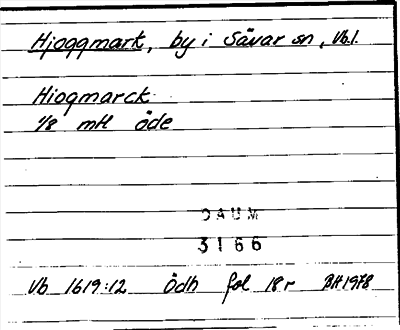 Hjoggmark, by i Sävar sn, Vb.l.
Hiogmarck
1/8 mtl öde
DAUM
3166
Vb 1619:12 Ödh fol 18r BH 1978